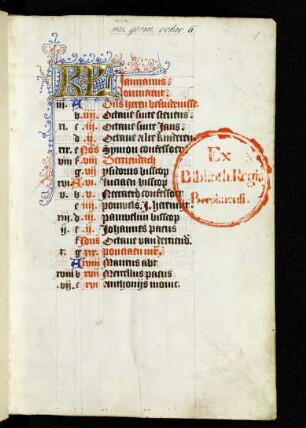 ms. germ. octav. 6.
KL Januarius.
iii. A Ons heren besnidenisse.
b. iiii. Octave sinte stevens.
xi. c iii. Octave sinte Jans.
d. ii. Octave alre kinderen
xix. e Nos Symon confessoer
viii f. viii Dertiendach
g vii Ysidorus bisscop
xvi A vi Luciaen bisscop
v. b. v. confessoer
c Pouwels. j. heremijt
xiii d. iii bisscop
ii. e ii. Johannes paeus
f Idus Octave van dertiend.
x. g xix. Ponciaen
A xviii Maurus abt
xviii b xvii Marcellus paeus
vii. c xvi Anthonijs monic.
Ex
Biblioth. Regia
Berolinensi.